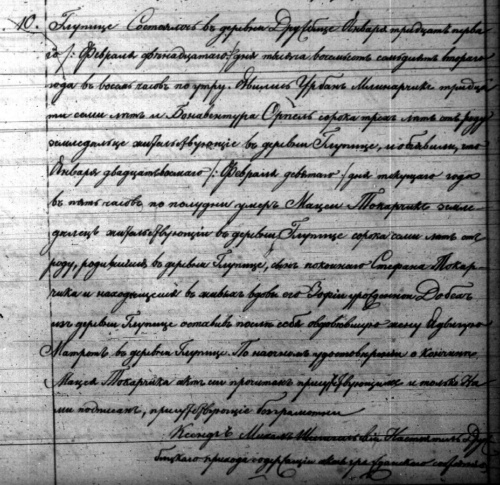 10. Глупице Состоялось въ деревни Друсбице Января тридцать перва
го /: Февраля двенадцатаго :/ дня тысяча восемьсотъ семьдесятъ втораго
года въ восемь часовъ по утру. Явились Урбанъ Млинарчикъ тридца
ти семи летъ и Бонавентура Орпель сорока трехъ летъ отъ роду
земледельце жительствующіе въ деревни Глупице, и объявили, что
Января двадцать восьмаго /: Февраля девятаго :/ дня текущаго года
въ пять часовъ по полудни умеръ Мацей Токарчикъ земле
делецъ жительствующій въ деревни Глупице сорока семи летъ отъ
роду, родившійся въ деревни Глупице, сынъ покойнаго Стефана Токар
чика и находящейся въ живыхъ вдовы его Зофіи урожденной
изъ деревни Глупице оставивъ после себя овдовевшую жену Ядвигу
въ деревни Глупице. По наочномъ удостовереніи о кончине
Мацея Токарчика актъ сей прочитанъ присутствующимъ и только На
ми подписанъ, присутствующіе безграмотни
Ксендзъ Настоятель Дру
бицкаго прихода содержащій акты гражданскаго состоянія